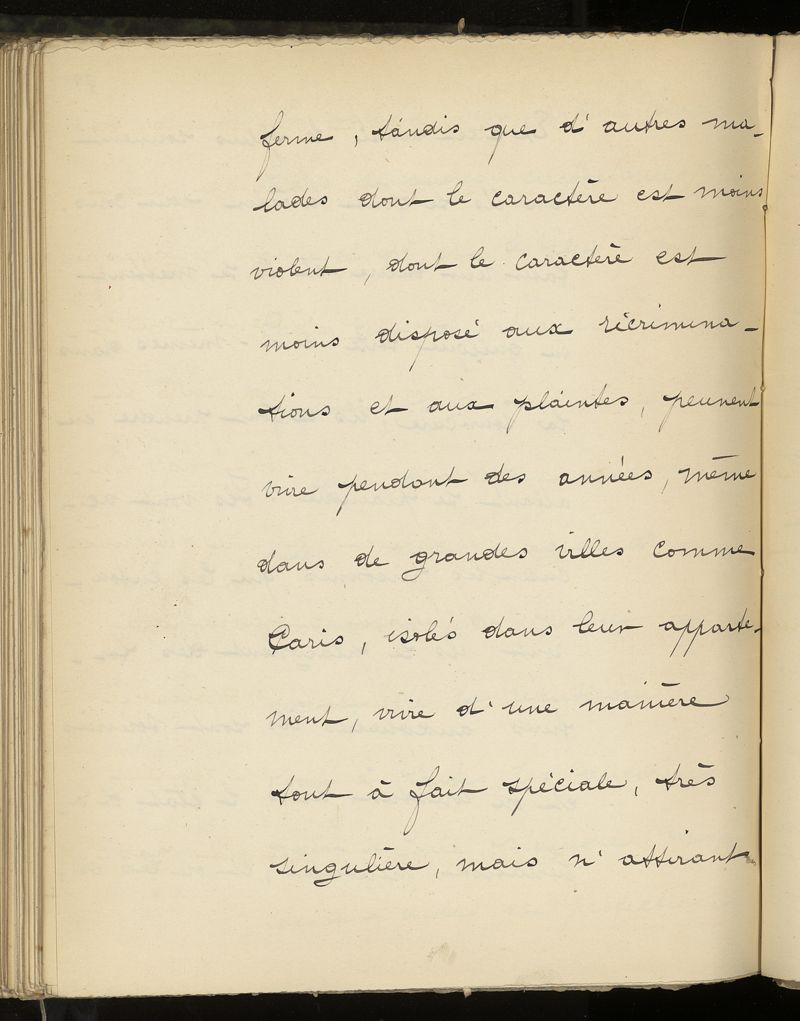 ferme, tandis que d'autres ma-
lades dont le caractère est moins
violent, dont le caractère est
moins disposé aux récrimina-
tions et aux plaintes, peuvent
vivre pendant des années, même
dans de grandes villes comme
Paris, isolés dans leur apparte-
ment, vivre d'une manière
tout à fait spéciale, très
singulière, mais n'attirant